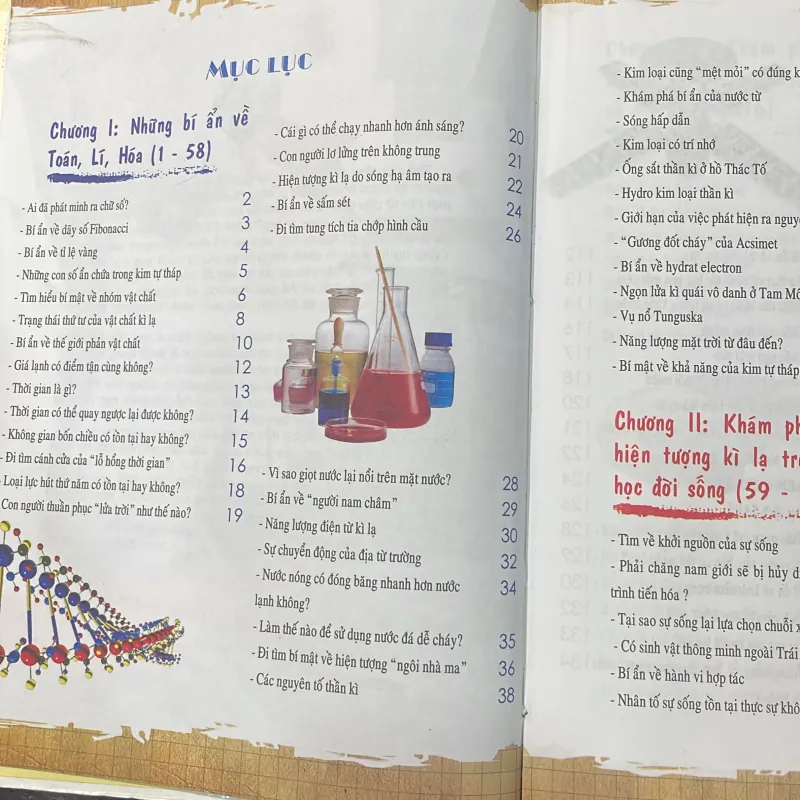 MỤC LỤC
Chương I: Những bí ẩn về
Toán, Lí, Hóa (1 - 58)
- Ai đã phát minh ra chữ số? 2
- Bí ẩn về dãy số Fibonacci 3
- Bí ẩn về tỉ lệ vàng 4
- Những con số ẩn chứa trong kim tự tháp 5
- Tìm hiểu bí mật về nhóm vật chất 6
- Trạng thái thứ tư của vật chất kì lạ 8
- Bí ẩn về thế giới phản vật chất 10
- Giá lạnh có điểm tận cùng không? 12
- Thời gian là gì? 13
- Thời gian có thể quay ngược lại được không? 14
- Không gian bốn chiều có tồn tại hay không? 15
- Đi tìm cánh cửa của “lỗ hổng thời gian” 16
- Loại lực hút thứ năm có tồn tại hay không? 18
Con người thuần phục “lửa trời” như thế nào? 19
- Cái gì có thể chạy nhanh hơn ánh sáng? 20
- Con người lơ lửng trên không trung 21
- Hiện tượng kì lạ do sóng hạ âm tạo ra 22
- Bí ẩn về sấm sét 24
- Đi tìm tung tích tia chớp hình cầu 26
- Vì sao giọt nước lại nổi trên mặt nước? 28
- Bí ẩn về “người nam châm” 29
- Năng lượng điện từ kì lạ 30
- Sự chuyển động của địa từ trường 32
- Nước nóng có đóng băng nhanh hơn nước 34
lạnh không?
- Làm thế nào để sử dụng nước đá dễ cháy? 35
- Đi tìm bí mật về hiện tượng “ngôi nhà ma” 36
- Các nguyên tố thần kì 38
- Kim loại cũng “mệt mỏi” có đúng
- Khám phá bí ẩn của nước từ
- Sóng hấp dẫn
- Kim loại có trí nhớ
- Ống sắt thần kì ở hồ Thác Tố
- Hydro kim loại thần kì
- Giới hạn của việc phát hiện ra
- “Gương đốt cháy” của Acsimet
- Bí ẩn về hydrat electron
- Ngọn lửa kì quái vô danh ở Tam
- Vụ nổ Tunguska
- Năng lượng mặt trời từ đâu đến?
- Bí mật về khả năng của kim tự tháp
Chương II: Khám
hiện tượng kì lạ
học đời sống (59 -
- Tìm về khởi nguồn của sự sống
- Phải chăng nam giới sẽ bị hủy
trình tiến hóa ?
- Tại sao sự sống lại lựa chọn chuỗi
- Có sinh vật thông minh ngoài Trái
- Bí ẩn về hành vi hợp tác
- Nhân tố sự sống tồn tại thực sự